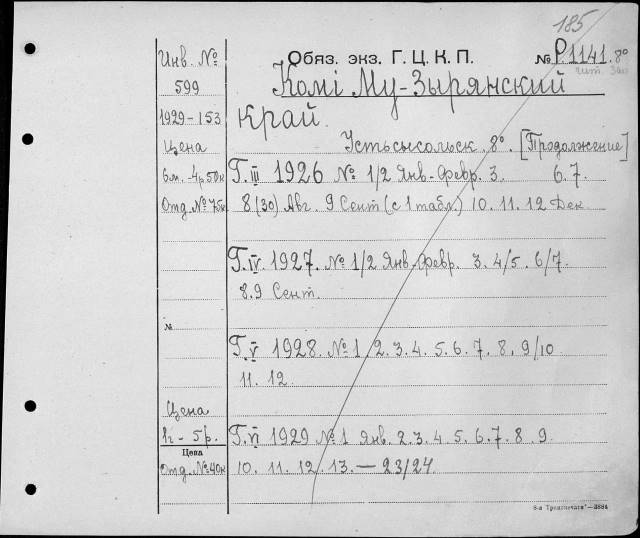 185
Инв. № Обяз. экз. Г. Ц. К. П. № Р.1141.8º
599 Комі Му-Зырянский чит. зал
1929-153 край.
Цена Устьсысольск. 8º. [Продолжение]
6 м. - 4 р 50 к Г. III 1926 № 1/2 Янв-Февр. 3. 6. 7.
Отд. № 75к 8 (30) Авг. 9 Сент (с 1 табл.) 10. 11. 12 Дек
Г. IV. 1927. № 1/2 Янв-Февр. 3. 4/5. 6/7.
8. 9 Сент.
№
Г. V 1928. № 1 2. 3. 4. 5. 6. 7. 8. 9/10
11. 12.
Цена
1 г - 5 р. Г. VI 1929 № 1 Янв. 2. 3. 4. 5. 6. 7. 8. 9.
Цена
Отд. № 40к 10. 11. 12. 13. — 23/24.
8-я „Транспечати“—3884